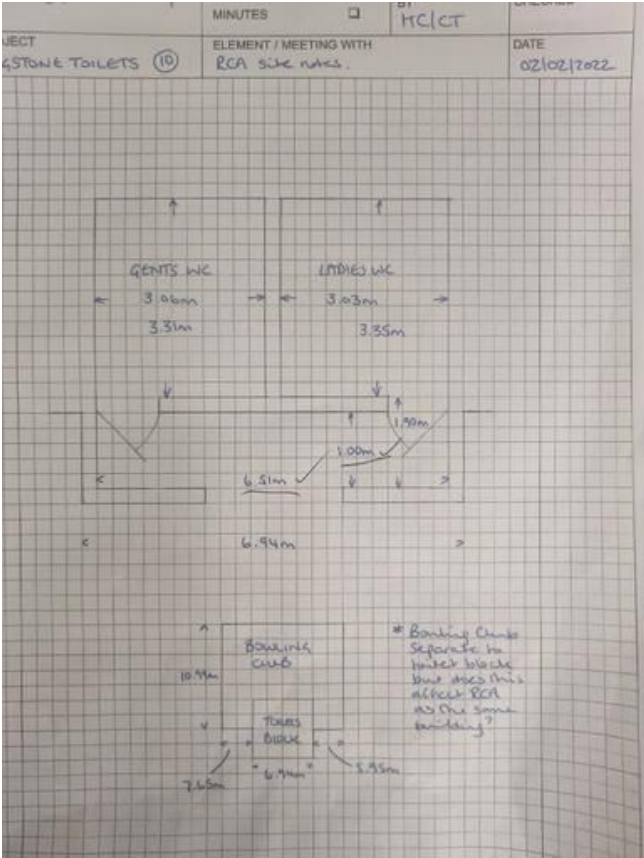 MINUTES
HC/CT
JECT
GSTONE TOILETS 10
ELEMENT / MEETING WITH
RCA site notes.
DATE
02/02/2022
GENTS WC
3.06m
3.31m
LADIES WC
3.03m
3.35m
1.90m
1.00m
6.51m
6.94m
BOWLING
CLUB
TOILET
BLOCK
7.65m
6.94m
5.95m
* Bowling Club
separate to
toilet block
but does this
affect RCA
as the same
building?